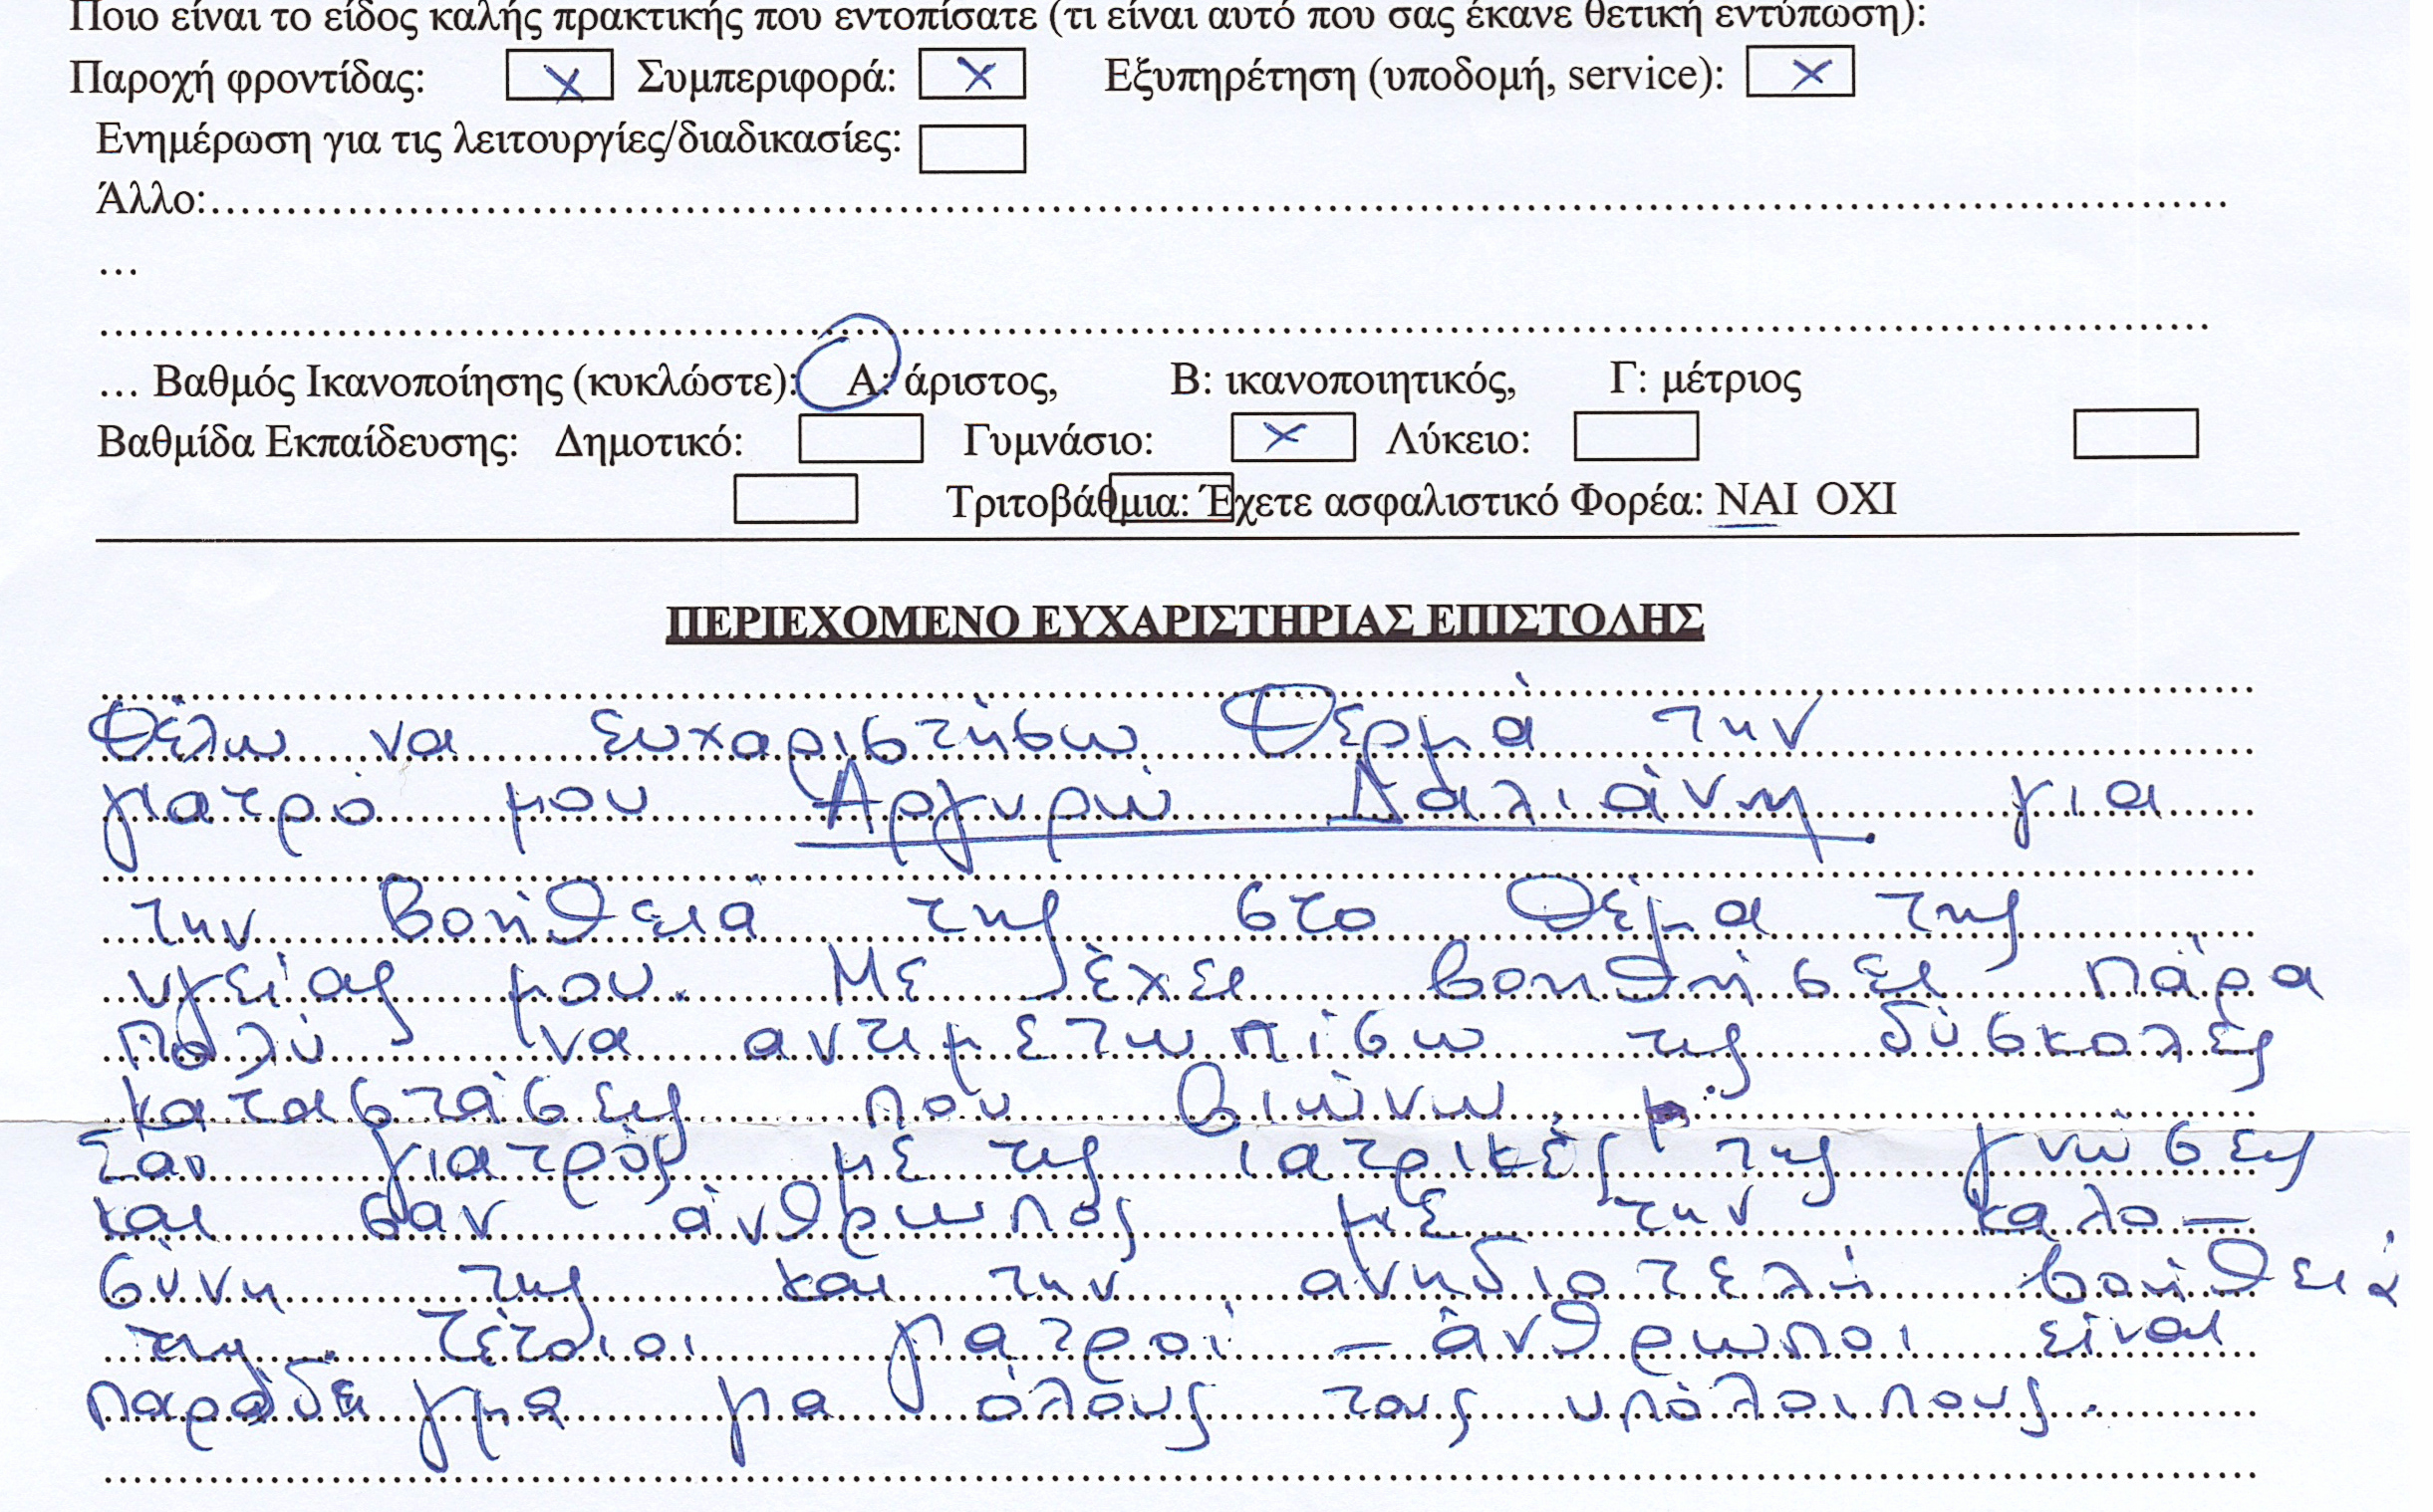 Ποιο είναι το είδος καλής πρακτικής που εντοπίσατε (τι είναι αυτό που σας έκανε θετική εντύπωση):
Παροχή φροντίδας: X Συμπεριφορά: X Εξυπηρέτηση (υποδομή, service): X
Ενημέρωση για τις λειτουργίες/διαδικασίες:
Άλλο:..........
...
..........
... Βαθμός Ικανοποίησης (κυκλώστε): Α: άριστος, Β: ικανοποιητικός, Γ: μέτριος
Βαθμίδα Εκπαίδευσης: Δημοτικό: Γυμνάσιο: X Λύκειο:
Τριτοβάθμια: Έχετε ασφαλιστικό Φορέα: ΝΑΙ ΟΧΙ
ΠΕΡΙΕΧΟΜΕΝΟ ΕΥΧΑΡΙΣΤΗΡΙΑΣ ΕΠΙΣΤΟΛΗΣ
Θέλω να ευχαριστήσω θερμά την
γιατρό μου Αργυρώ Δαλιάνη για
την βοήθειά της στο θέμα της
υγείας μου. Με έχει βοηθήσει πάρα
πολύ να αντιμετωπίσω τις δύσκολες
καταστάσεις που βιώνω.
Σαν γιατρός με τις ιατρικές της γνώσεις
και σαν άνθρωπος με την καλο-
σύνη της και την ανηδιοτελή βοήθειά
της. Τέτοιοι γιατροί - άνθρωποι είναι
παράδειγμα για όλους τους υπόλοιπους.